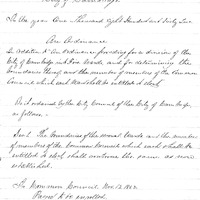 City of
In the year One Thousand Eight Hundred and Sixty two
An Ordinance
In relation to An Ordinance providing for a division of the
City of into five wards, and for determining the
boundaries thereof and the number of members of the Common
Council which each Ward shall be entitled to elect.
Be it ordained by the City Council of the City of
as follows,
Sec 1 The boundaries of the several wards and the number
of members of the Common Council which each shall be
entitled to elect shall continue the same as now
established.
In Common Council Nov. 12. 1862.
Passed to be enrolled.